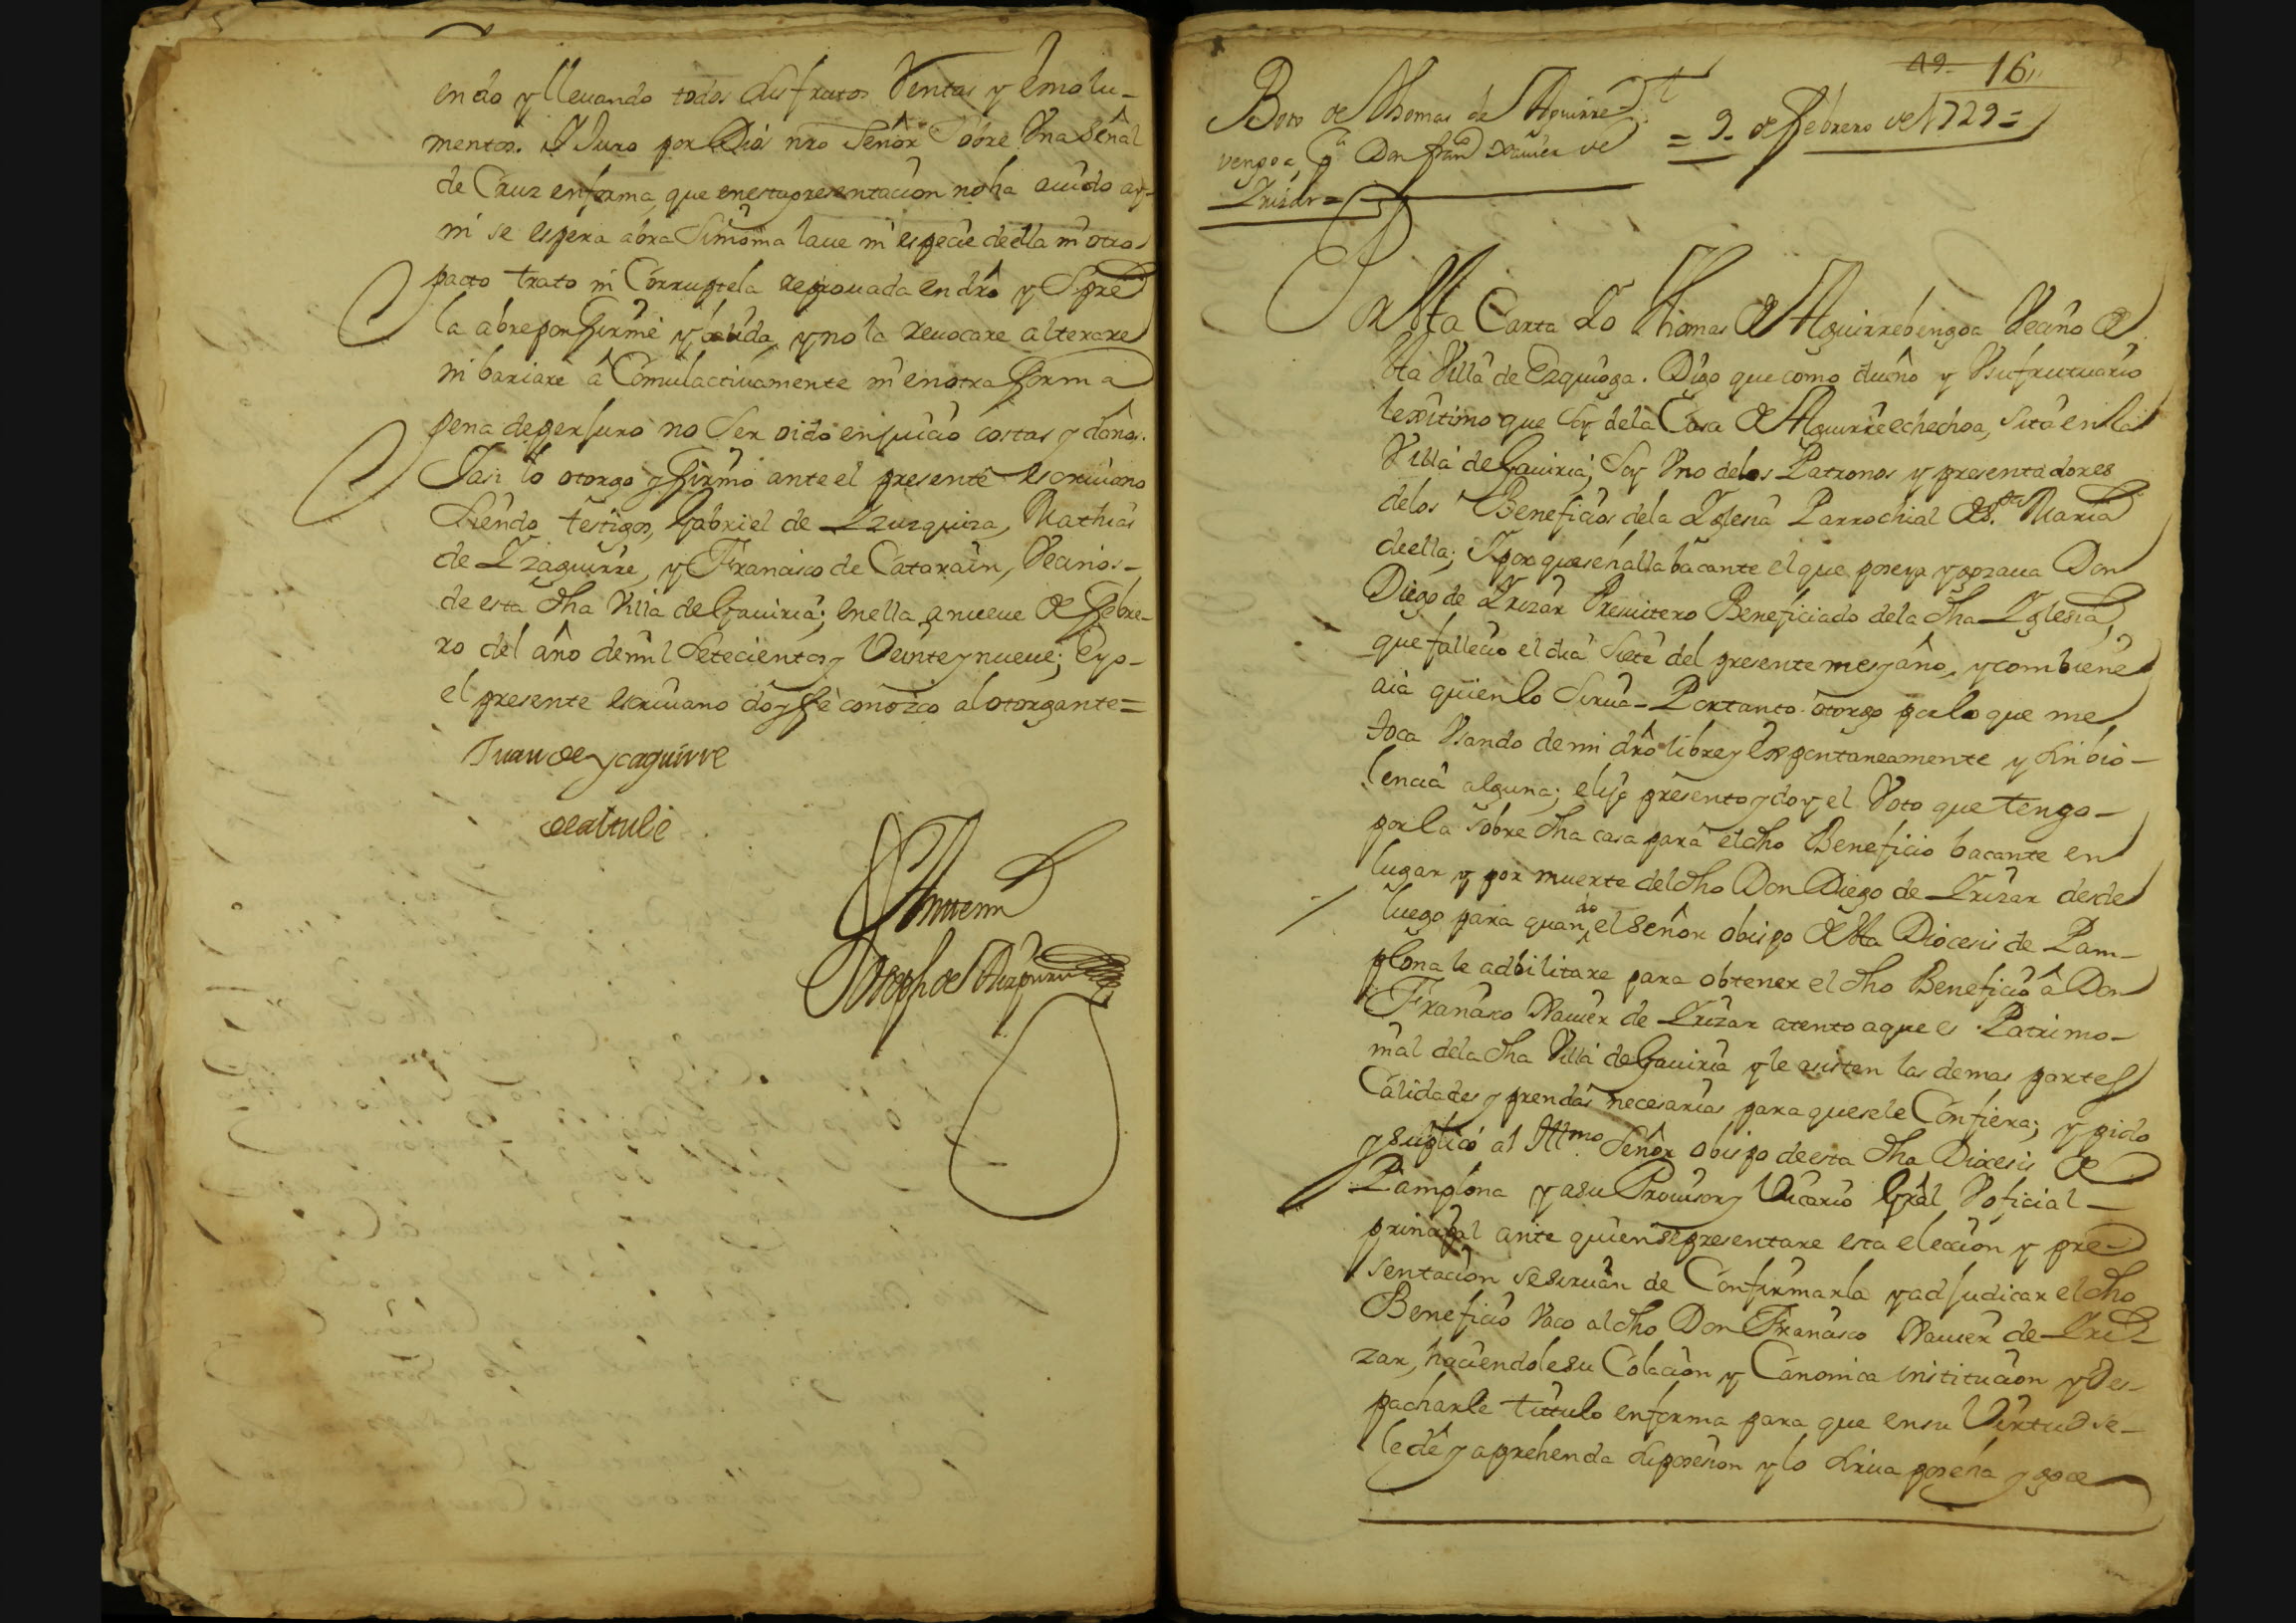 endo y lleuando todos sus frutos Rentas y emolu-
mentos. Y Juro por Dios nro Señor Sobre Vna Señal
de Cruz enforma, que enestapresentacion noha auido ay-
ni se espera abra Simonia laue ni especie deella ni otro
pacto trato ni Corruptela reprouada en dro y Spre
la abre por firme y balida, y no la reuocare alterare
ni bariare â Comulactiuamente ni enotra forma
pena deperjuro no Ser oido enjuicio costas y daños.
Yasi lo otorgo y firmo ante el presente escriuano
Siendo testigos, Gabriel de Yzurquiza, Mathias
de Yzaguirre, y Francisco de Catarain, Vecinos-
de esta dha Villa de Gauiria; enella a nueue de febre-
ro del año demil Setecientos y Veinte y nueue; Eyo-
el presente escriuano doy fè conozco al otorgante=
Juan de ycaguirre
Ante mi
Joseph de
49 16
Boto de Thomas de Aguirre
vengoa, pa Don franco Xauier de
Yrizar=
= 9. de febrero de 1729=
Por esta Carta Yo Thomas de Aguirrebengoa Vecino de
esta Villa de Ezquioga. Digo que como dueño y Vsufrutuario
lexitimo que Soy dela Casa de Aguirreechechoa, sita en la
Villa de Gauiria, Soy Vno delos Patronos y presentadores
delos Beneficios dela Yglesia Parrochial de S.ta Maria
deella; Y porquesehalla bacante el que poseya y gozaua Don
Diego de Yrizar Presuitero Beneficiado dela dha Yglesia,
que fallecio el dia Siete del presente mes y año, y combiene
aia quien lo Sirua- Portanto otorgo por lo que me
toca Vsando de mi dro libre y espontaneamente y sin bio-
lencia alguna; elijo presento y doy el Voto que tengo-
por la sobre dha casa para el dho Beneficio bacante en
lugar y por muerte del dho Don Diego de Yrizar desde
luego para quando el Señor obispo de esta Diocesis de Pam-
plona le adbilitare para obtener el dho Beneficio â Don
Francisco Xauier de Yrizar atento aque es Patrimo-
nial dela dha Villa de Gauiria y le asisten las demas partes
Calidades y prendas necesarias para quesele Confiera; y pido
y suplico al Yllmo. Señor obispo deesta dha Diocesis de
Pamplona y asu Prouisor y Vicario Gral V oficial-
principal ante quien sepresentare esta eleccion y pre-
sentacion sesiruan de Confirmarla y adjudicar el dho
Beneficio Vaco al dho Don Francisco Xauier de Yri-
zar, haciendole su Colacion y Canonica institucion y des-
pacharle titulo enforma para que ensu Virtud se-
le dê y aprehenda suposesion y lo sirua posehia y goce